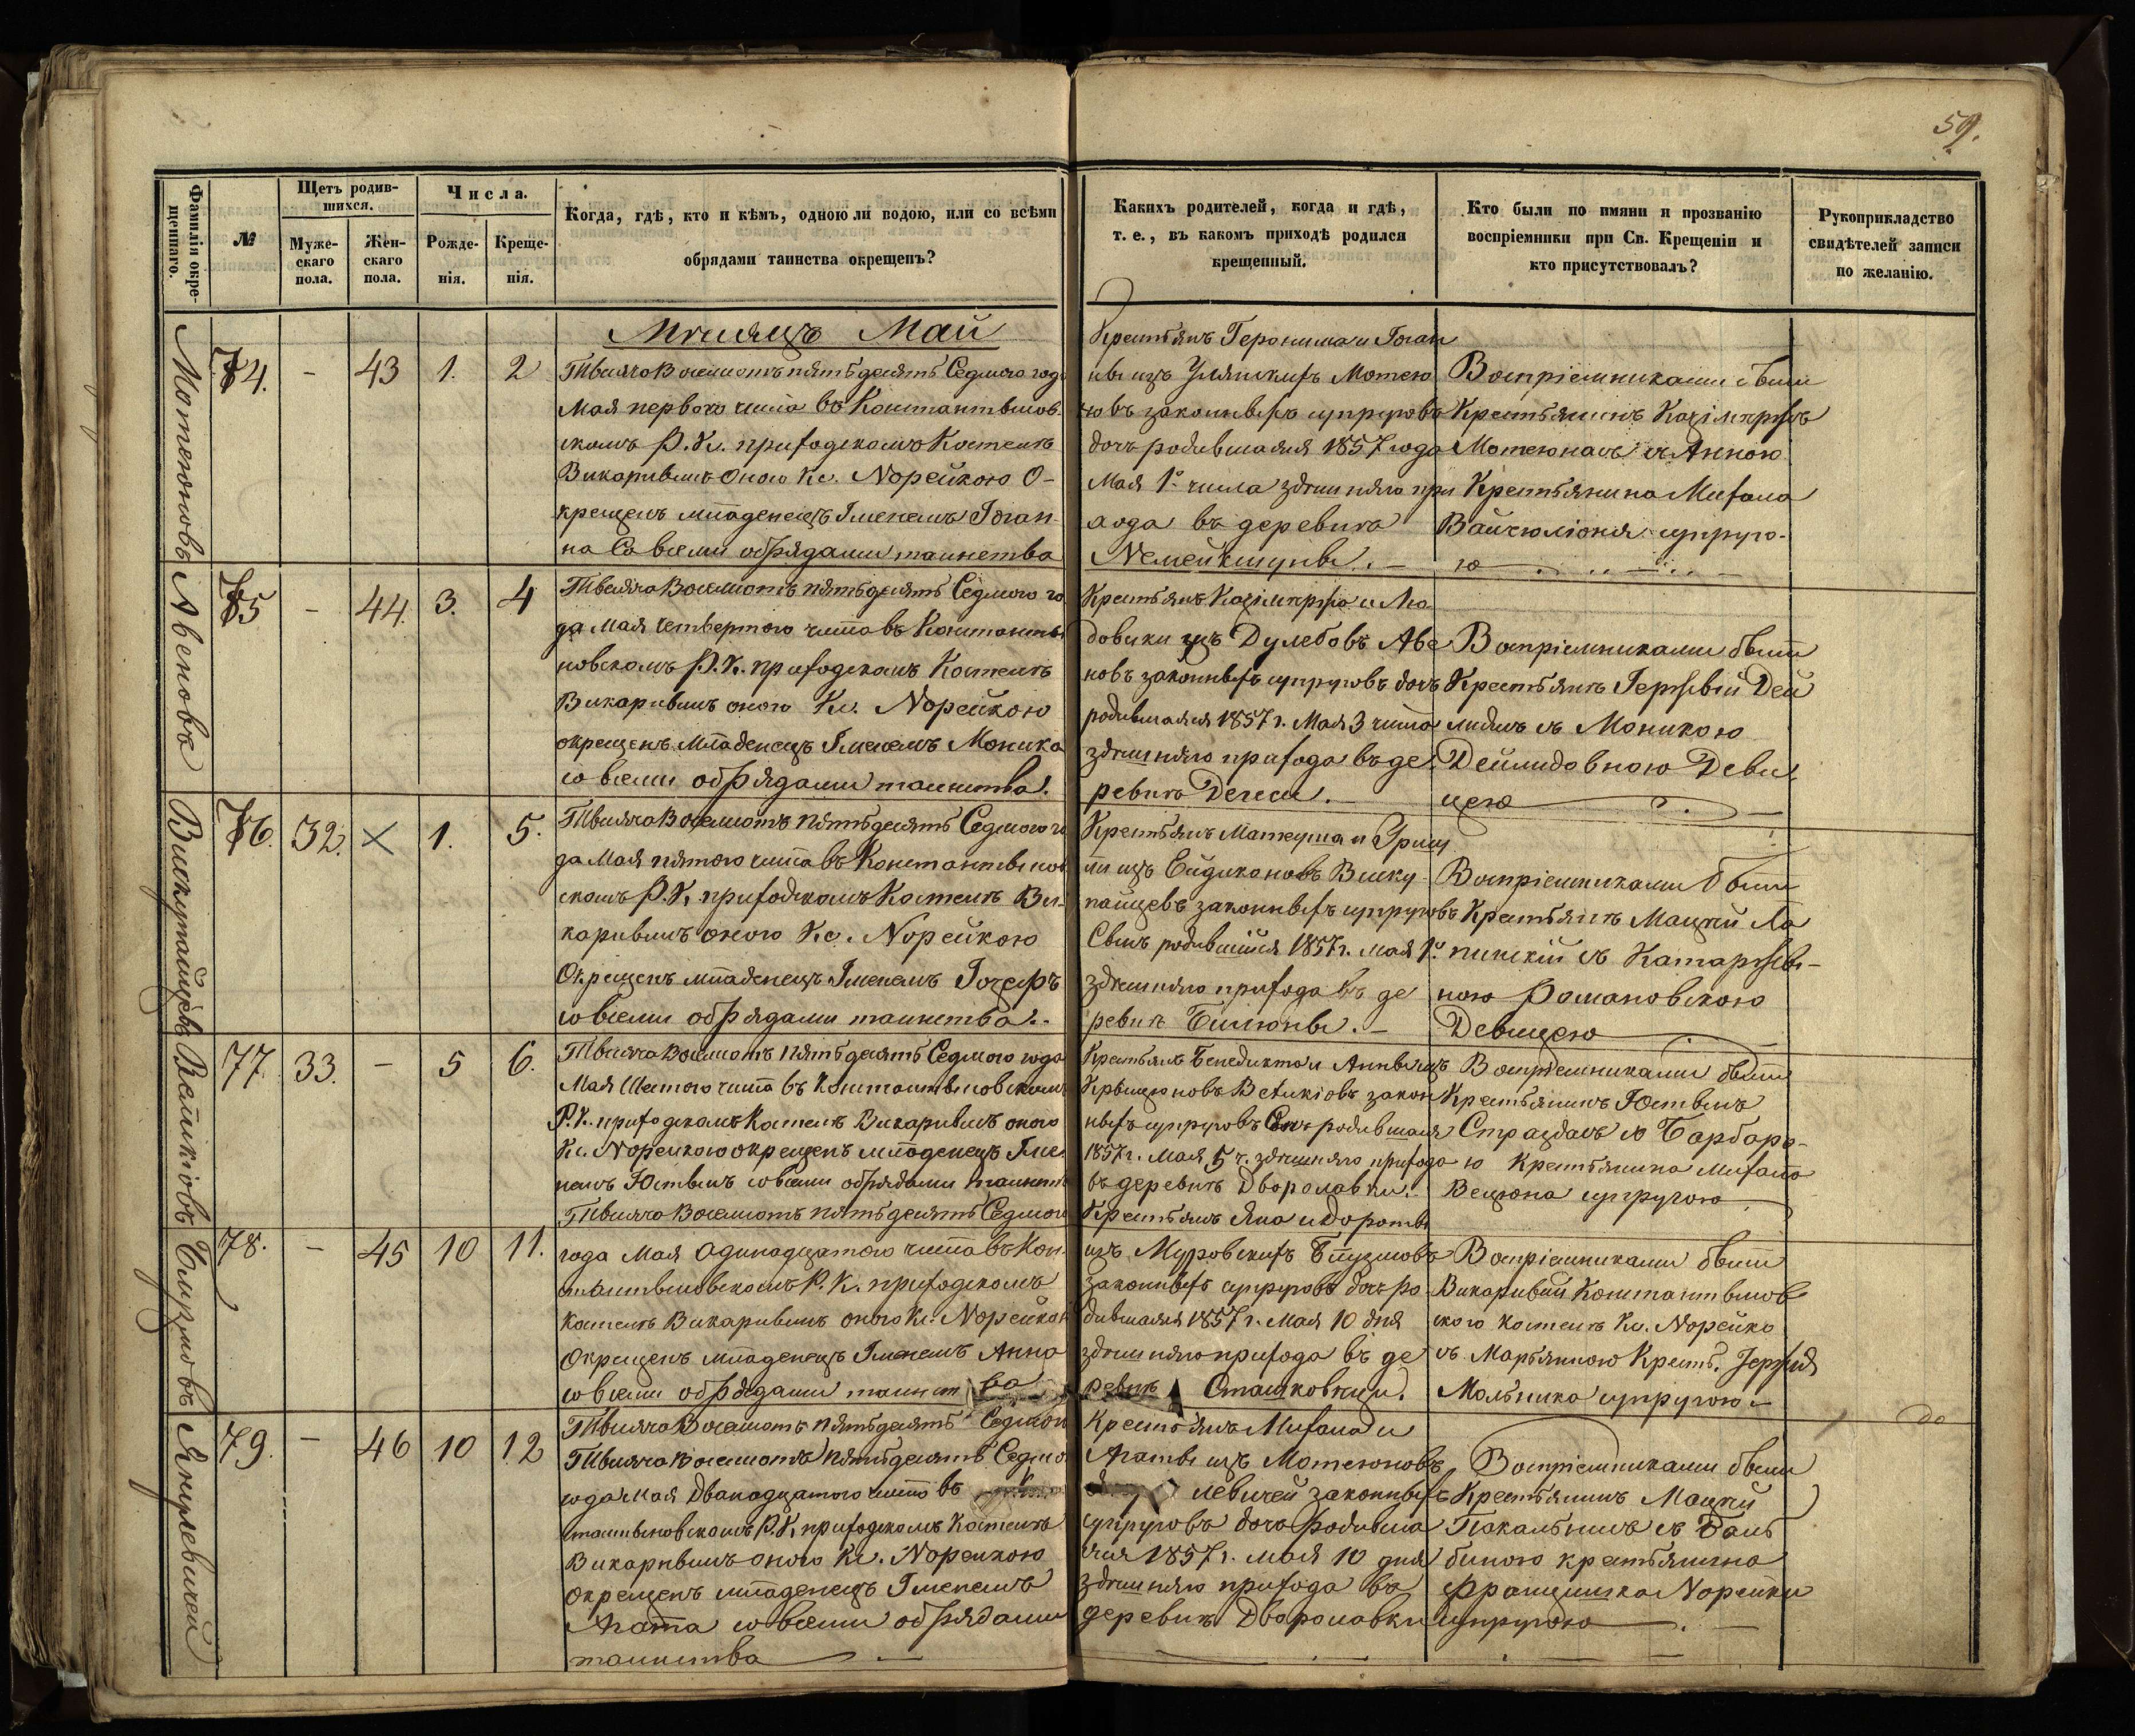 59.
Фамилія окре-
щеннаго.
№
Щетъ родив-
шихся.
Муже-
скаго
пола.
Жен-
скаго
пола.
Числа.
Рожде-
нія.
Креще-
нія.
Когда, гдѣ, кто и кѣмъ, одною ли водою, или со всѣми
обрядами таинства окрещенъ?
Какихъ родителей, когда и гдѣ,
т. е., въ какомъ приходѣ родился
крещенный.
Кто были по имяни и прозванію
воспріемники при Св. Крещеніи и
кто присутствовалъ?
Рукоприкладство
свидѣтелей записи
по желанію.
Мѣсяцъ Май
Матеюновъ
74. - 43 1. 2
Тысяча Восемсотъ пятьдесятъ Седмого года
Мая первого числа въ Константынов-
скомъ Р. К. приходскомъ Костелѣ
Викарнымъ оного Кс. Норейкою О-
крещенъ младенецъ Именемъ Іоан-
на Со всеми обрядами таинства
Крестьянъ Іеронима и Іоан
ны изъ Матею
новъ законныхъ супруговъ
дочь родившаяся 1857 года
Мая 1го числа здѣшняго при
хода въ деревнѣ
Немейкшуны. -
Воспріемниками были
Крестьянинъ Казімиржъ
Матеюнасъ съ Анною
Крестьянина Михала
Вайчюліоня супруго-
ю
Авеновъ
75 - 44. 3. 4
Тысяча Восемсотъ пятьдесятъ Седмого го
да Мая четвертого числа въ Константы
новскомъ Р. К. приходскомъ Костелѣ
Викарнымъ оного Кс. Норейкою
окрещенъ Младенецъ Именемъ Моника
со всеми обрядами таинства.
Крестьянъ Казімиржа и Лю
довики изъ Дулебовъ Аве
новъ законныхъ супруговъ дочь
родившаяся 1857 г. Мая 3 числа
здѣшняго прихода въ де
ревнѣ Дегеси. -
Воспріемниками были
Крестьянъ Гержый Дей
лидисъ съ Моникою
Дейлидовною Деви
цею
Вискупайцевъ
76. 32. × 1. 5.
Тысяча Восемсотъ пятьдесятъ Седмого го
да Мая пятого числа въ Константынов
скомъ Р. К. приходскомъ Костелѣ Ви-
карнымъ оного Кс. Норейкою
Окрещенъ младенецъ Именемъ Іозефъ
со всеми обрядами таинства. -
Крестьянъ Матеуша и Уршу
ли изъ Ейдукановъ Виску
пайцевъ законныхъ супруговъ
Сынъ родившійся 1857 г. мая 1го
здѣшняго прихода въ де
ревнѣ Билюны. -
Воспріемниками были
Крестьянъ Мацѣй Ла
пинскій съ Катаржы-
ною Романовскою
Девицею
Великіовъ
77. 33. - 5 6.
Тысяча Восемсотъ пятьдесятъ Седмого года
Мая Шестого числа въ Константыновскомъ
Р. К. приходскомъ Костелѣ Викарнымъ оного
Кс. Норейкою окрещенъ младенецъ Име
немъ Юстынъ со всеми обрядами таинств
Крестьянъ Бенедикта и Анны изъ
законныхъ супруговъ Сынъ родившаяся
1857 г. Мая 5 ч. здѣшняго прихода
въ деревнѣ Двораславки. -
Воспріемниками были
Крестьянинъ Юстынъ
Страздасъ съ Барбаро-
ю Крестьянина Михала
Вецюна супругою
78. - 45 10 11.
Тысяча Восемсотъ пятьдесятъ Седмого
года Мая Одинадцатого числа въ Кон-
стантыновскомъ Р. К. приходскомъ
костелѣ Викарнымъ оного Кс. Норейкою
Окрещенъ младенецъ Именемъ Анна
со всеми обрядами таинства
Крестьянъ Яна и Дороты
изъ Муровскихъ
законныхъ супруговъ дочь ро
дившаяся 1857 г. Мая 10 дня
здѣшняго прихода въ де
ревнѣ Сташковщи.
Воспріемниками были
Викарный Константынов
ского костела Кс. Норейко
съ Марьянною Крест. Іержія
Мольника супругою
Янулевичей
79. - 46 10 12
Тысяча Восемсотъ пятьдесятъ Седмого
Тысяча Восемсотъ пятьдесятъ Седмо
года Мая Дванадцатого числа въ
стантыновскомъ Р. К. приходскомъ Костелѣ
Викарнымъ оного Кс. Норейкою
Окрещенъ младенецъ Именемъ
Агата со всеми обрядами
таинства
Крестьянъ Михала и
Агаты изъ Матеюновъ
левичей законныхъ
супруговъ дочь родивша
яся 1857 г. мая 10 дня
здѣшняго прихода въ
деревнѣ Двораславки
Воспріемниками были
Крестьянинъ Мацѣй
Покальнисъ съ Баль
биною крестьянина
Францишка Норейки
супругою